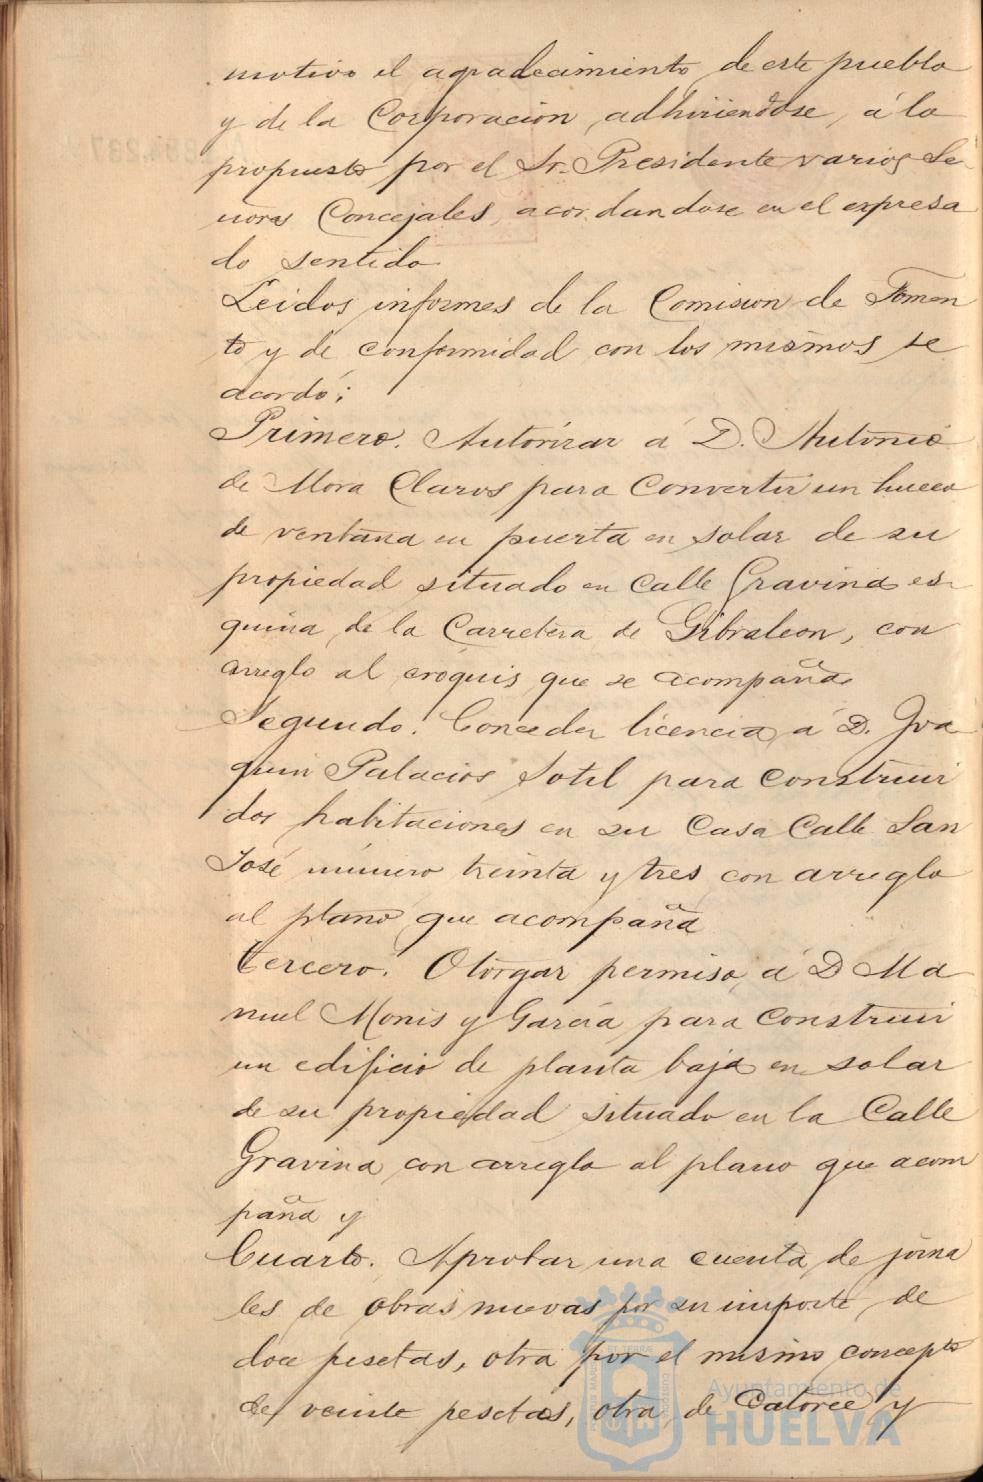 motivo el agradecimiento de este pueblo
y de la Corporacion adhiriendose, á lo
propuesto por el Sr. Presidente varios Se
ñores Concejales, acordandose en el expresa
do sentido
Leidos informes de la Comision de Fomen
to y de conformidad con los mismos se
acordó:
Primero. Autorizar á D. Antonio
de Mora Claros para convertir un hueco
de ventana en puerta en solar de su
propiedad situado en calle Gravina es-
quina de la Carretera de Gibraleon, con
arreglo al cróquis que se acompaña
Segundo. Conceder licencia á D. Joa
quin Palacios Sotil para construir
dos habitaciones en su Casa Calle San
José número treinta y tres con arreglo
al plano que acompaña
tercero. Otorgar permiso á D Ma
nuel Monis y García para construir
un edificio de planta baja en solar
de su propiedad situado en la Calle
Gravina con arreglo al plano que acom
paña y
Cuarto. Aprobar una cuenta de jorna
les de obras nuevas por su importe de
doce pesetas, otra por el mismo concepto
de veinte pesetas, otra de Catorce y
Ayuntamiento de
HUELVA